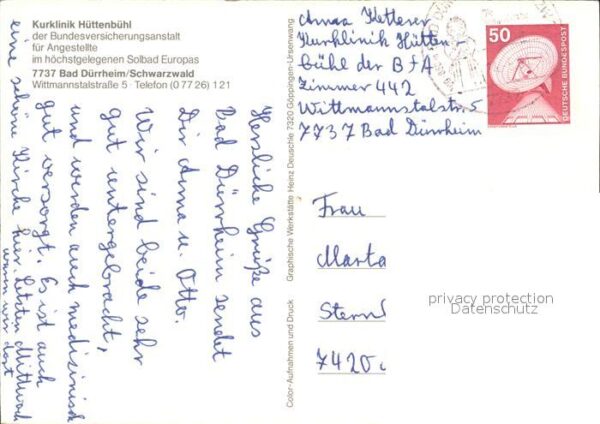 Kurklinik Hüttenbühl
der Bundesversicherungsanstalt
für Angestellte
im höchstgelegenen Solbad Europas
7737 Bad Dürrheim/Schwarzwald
Wittmannstalstraße 5 · Telefon (0 77 26) 1 21
Herzliche Grüße aus
Bad Dürrheim sendet
Dir Anna u. Otto.
Wir sind beide sehr
gut untergebracht,
und werden auch medizinisch
gut versorgt. Es ist auch
eine schöne Kirche hier. Letzten Mittwoch
waren wir dort
Color-Aufnahmen und Druck Graphische Werkstätte Heinz Deuschle 7320 Göppingen-Ursenwang
Anna Ketterer
Kurklinik Hütten-
Bühl der BfA
Zimmer 442
Wittmannstalstr 5
7737 Bad Dürrheim
50
DEUTSCHE BUNDESPOST
Frau
Marta
Stern
7420
privacy protection
Datenschutz